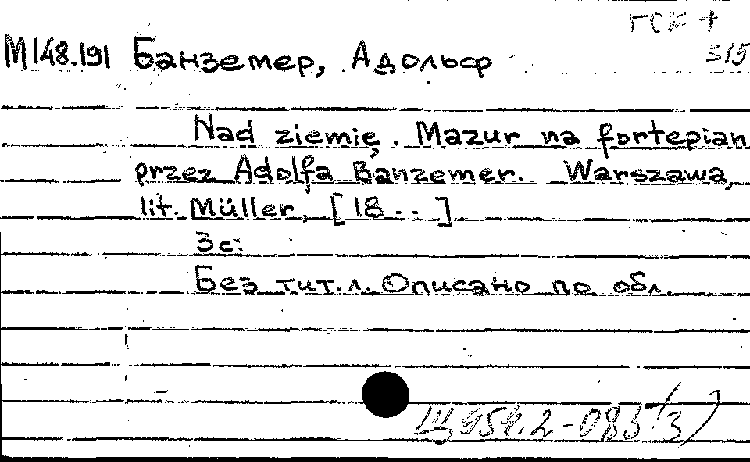 ГСК +
М148.191 Банземер, Адольф 315
Nad ziemię. Mazur na fortepian
przez Adolfa Banzemer. Warszawa,
lit. Müller, [18..]
3 с.
Без тит.л. Описано по обл.
Щ959.2-083